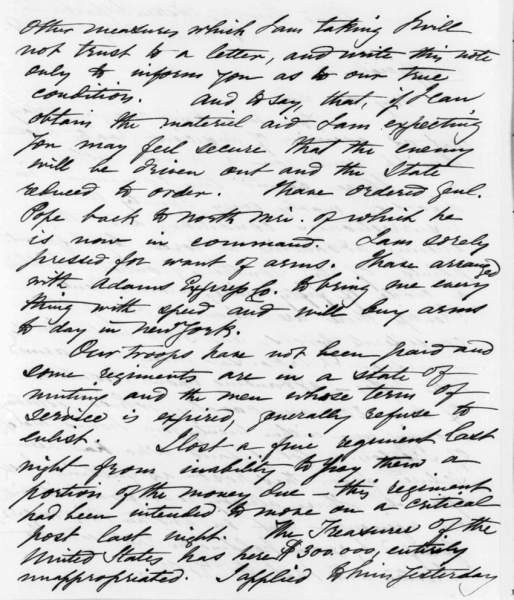 Other measures which I am taking I will
not trust to a letter, and write this note
only to inform you as to our true
condition. And to say, that, if I can
obtain the material aid I am expecting
you may feel secure that the enemy
will be driven out and the State
reduced to order. I have ordered Genl.
Pope back to north Mri. of which he
is now in command. I am sorely
pressed for want of arms. I have arranged
with Adams Express Co. to bring me every
thing with speed and will buy arms
to day in New York.
Our troops have not been paid and
some regiments are in a state of
mutiny and the men whose term of
service is expired, generally refuse to
enlist. I lost a fine regiment last
night from inability to pay them a
portion of the money due – this regiment
had been intended to move on a critical
post last night. The Treasurer of the
United States has here $300.000, entirely
unappropriated. I applied to him yesterday